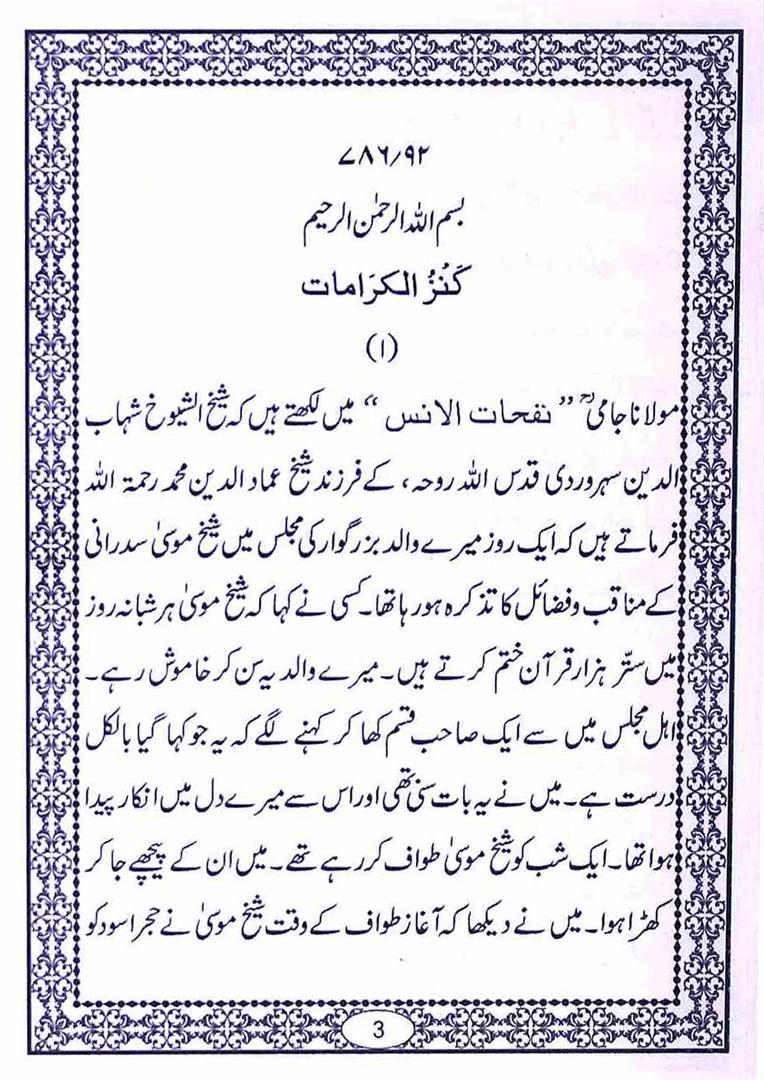 ۷۸۶/۹۲
بسم اللہ الرحمٰن الرحیم
كَنُزُ الكرَامات
(۱)
مولانا جامیؒ ”نفحات الانس“ میں لکھتے ہیں کہ شیخ الشیوخ شہاب
الدین سہروردی قدس اللہ روحہ، کے فرزند شیخ عماد الدین محمد رحمۃ اللہ
فرماتے ہیں کہ ایک روز میرے والد بزرگوار کی مجلس میں شیخ موسیٰ سدرانی
کے مناقب وفضائل کا تذکرہ ہورہا تھا۔ کسی نے کہا کہ شیخ موسیٰ ہر شبانہ روز
میں ستّر ہزار قرآن ختم کرتے ہیں۔ میرے والد یہ سن کر خاموش رہے۔
اہل مجلس میں سے ایک صاحب قسم کھا کر کہنے لگے کہ یہ جو کہا گیا بالکل
درست ہے۔ میں نے یہ بات سنی تھی اور اس سے میرے دل میں انکار پیدا
ہوا تھا۔ ایک شب کو شیخ موسیٰ طواف کررہے تھے۔ میں ان کے پیچھے جا کر
کھڑا ہوا۔ میں نے دیکھا کہ آغاز طواف کے وقت شیخ موسیٰ نے حجر اسود کو
3